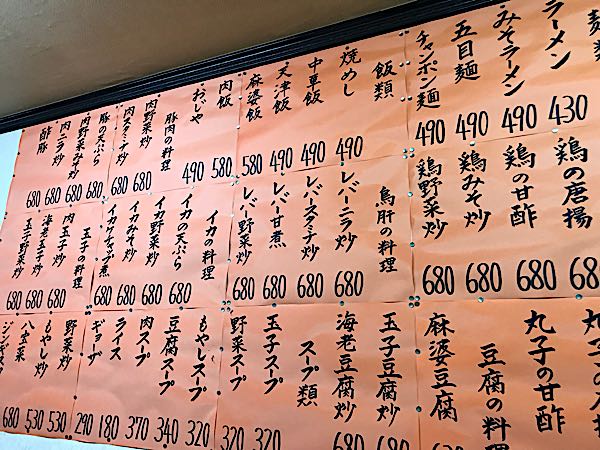 ラーメン 430
みそラーメン 490
五目麺 490
チャンポン麺 490
飯類
焼めし 490
中華飯 490
天津飯 490
麻婆飯 580
肉飯 580
おじや 490
豚肉の料理
肉野菜炒 680
肉スタミナ炒 680
豚の天ぷら 680
肉野菜みそ炒 680
肉ニラ炒 680
酢豚 680
鶏の唐揚
鶏の甘酢 680
鶏みそ炒 680
鶏野菜炒 680
鳥肝の料理
レバーニラ炒 680
レバースタミナ炒 680
レバー甘煮 680
レバー野菜炒 680
イカの料理
イカの天ぷら 680
イカ野菜炒 680
イカみそ炒 680
イカケチャップ煮 680
玉子の料理
肉玉子炒 680
海老玉子炒 680
玉子野菜炒 680
丸子の
丸子の甘酢
豆腐の料理
麻婆豆腐
玉子豆腐炒 680
海老豆腐炒 680
スープ類
玉子スープ 320
野菜スープ 320
もやしスープ 320
豆腐スープ 340
肉スープ 370
ライス 180
ギョーザ 290
野菜炒 530
もやし炒 530
八宝菜 680